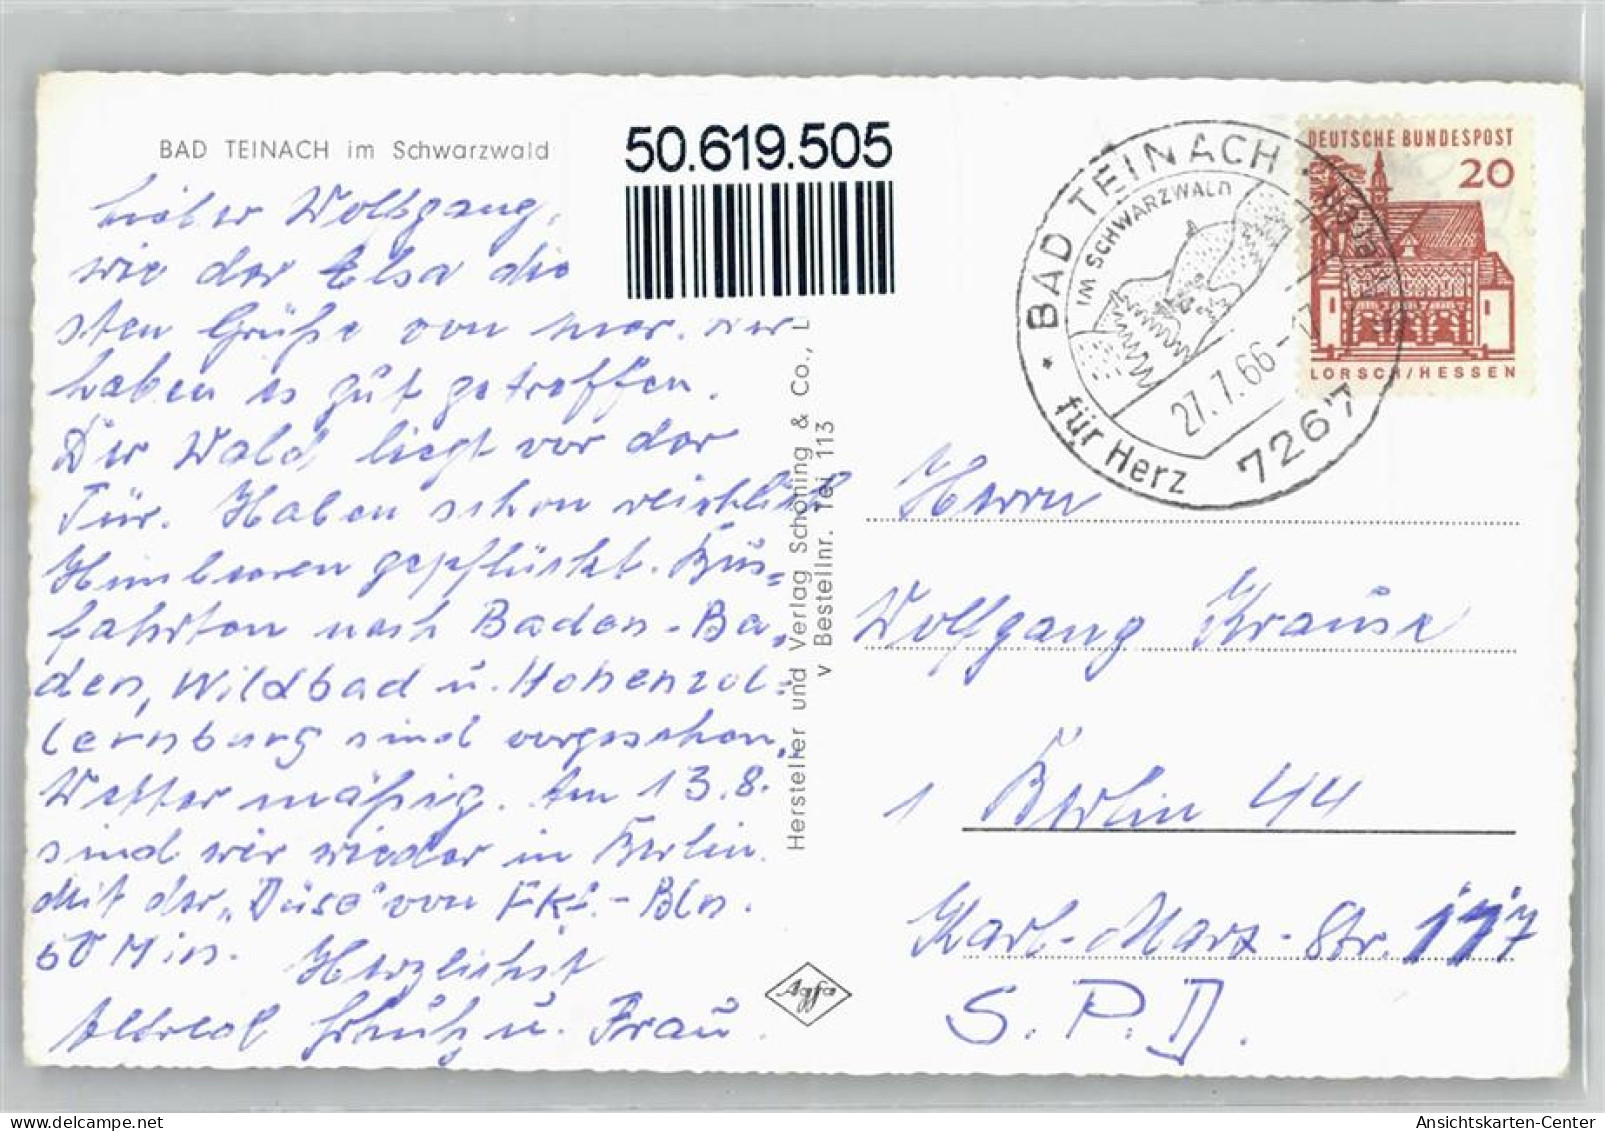 BAD TEINACH im Schwarzwald
50.619.505
Lieber Wolfgang,
wie der Elsa die
sten Grüße von hier. Wir
haben es gut getroffen.
Der Wald liegt vor der
Tür. Haben schon reichlich
Himbeeren gepflückt. Bus=
fahrten nach Baden-Ba,
den, Wildbad u. Hohenzol=
lernburg sind vorgesehen.
Wetter mäßig. Am 13.8.
sind wir wieder in Berlin.
Mit der "Düse" von Fkf.-Bln.
50 Min. Herzlichst
Alfred Schulz u. Frau.
Hersteller und Verlag Schöning & Co., L
v Bestellnr. Tei 113
Agfa
BAD TEINACH
IM SCHWARZWALD
27.7.66-
für Herz
7267
DEUTSCHE BUNDESPOST
20
LORSCH/HESSEN
Herrn
Wolfgang Krause
1 Berlin 44
Karl-Marx-Str. 117
S.P.D.
AnsichtsKarten-Center
www.delcampe.net